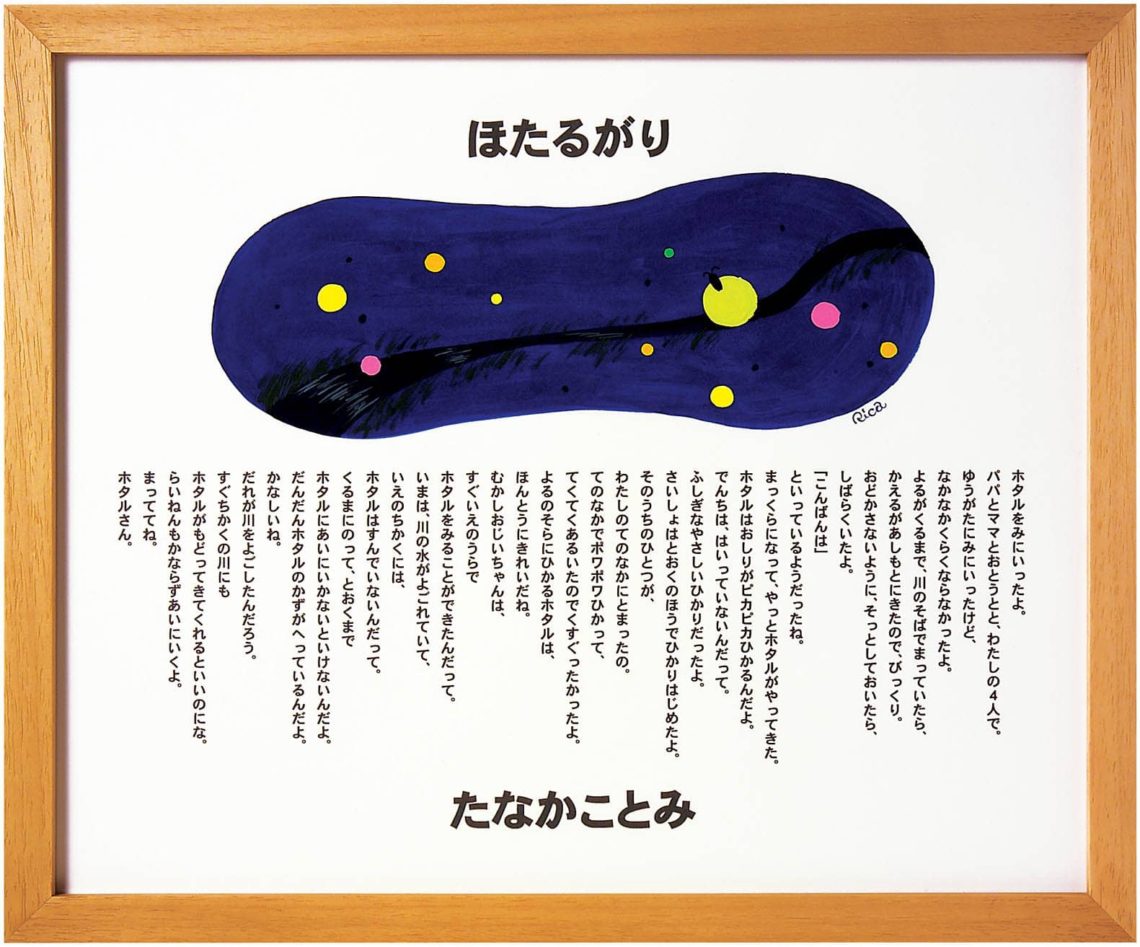 ほたるがり
Rica
ホタルをみにいったよ。
パパとママとおとうとと、わたしの4人で。
ゆうがたにみにいったけど、
なかなかくらくならなかったよ。
よるがくるまで、川のそばでまっていたら、
かえるがあしもとにきたので、びっくり。
おどかさないように、そっとしておいたら、
しばらくいたよ。
「こんばんは」
といっているようだったね。
まっくらになって、やっとホタルがやってきた。
ホタルはおしりがピカピカひかるんだよ。
でんちは、はいっていないんだって。
ふしぎなやさしいひかりだったよ。
さいしょはとおくのほうでひかりはじめたよ。
そのうちのひとつが、
わたしのてのなかにとまったの。
てのなかでポワポワひかって、
てくてくあるいたのでくすぐったかったよ。
よるのそらにひかるホタルは、
ほんとうにきれいだね。
むかしおじいちゃんは、
すぐいえのうらで
ホタルをみることができたんだって。
いまは、川の水がよごれていて、
いえのちかくには、
ホタルはすんでいないんだって。
くるまにのって、とおくまで
ホタルにあいにいかないといけないんだよ。
だんだんホタルのかずがへっているんだよ。
かなしいね。
だれが川をよごしたんだろう。
すぐちかくの川にも
ホタルがもどってきてくれるといいのにな。
らいねんもかならずあいにいくよ。
まっててね。
ホタルさん。
たなかことみ